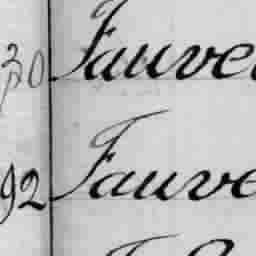 Fauve
92 Fauve